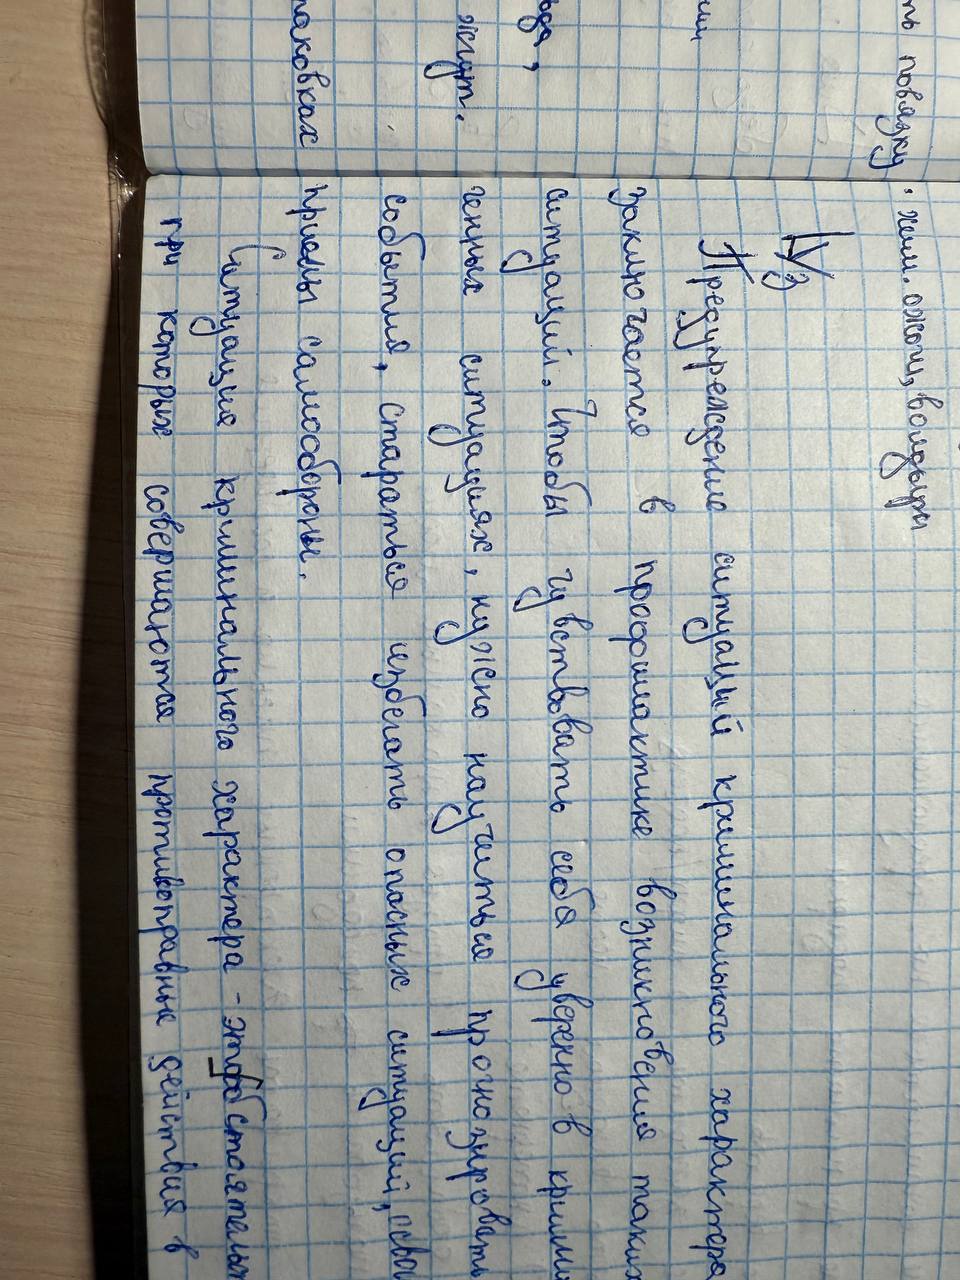 ть повязку. хим. ожоги, волдыри
ода,
жгут.
паковках
IV з
Предупреждение ситуаций криминального характера
заключается в профилактике возникновения таких
ситуаций. Чтобы чувствовать себя уверенно в кримино
генных ситуациях, нужно научиться прогнозировать
события, стараться избегать опасных ситуаций,
приемы самообороны.
Ситуация криминального характера - это обстоятельст
при которых совершаются противоправные действия в